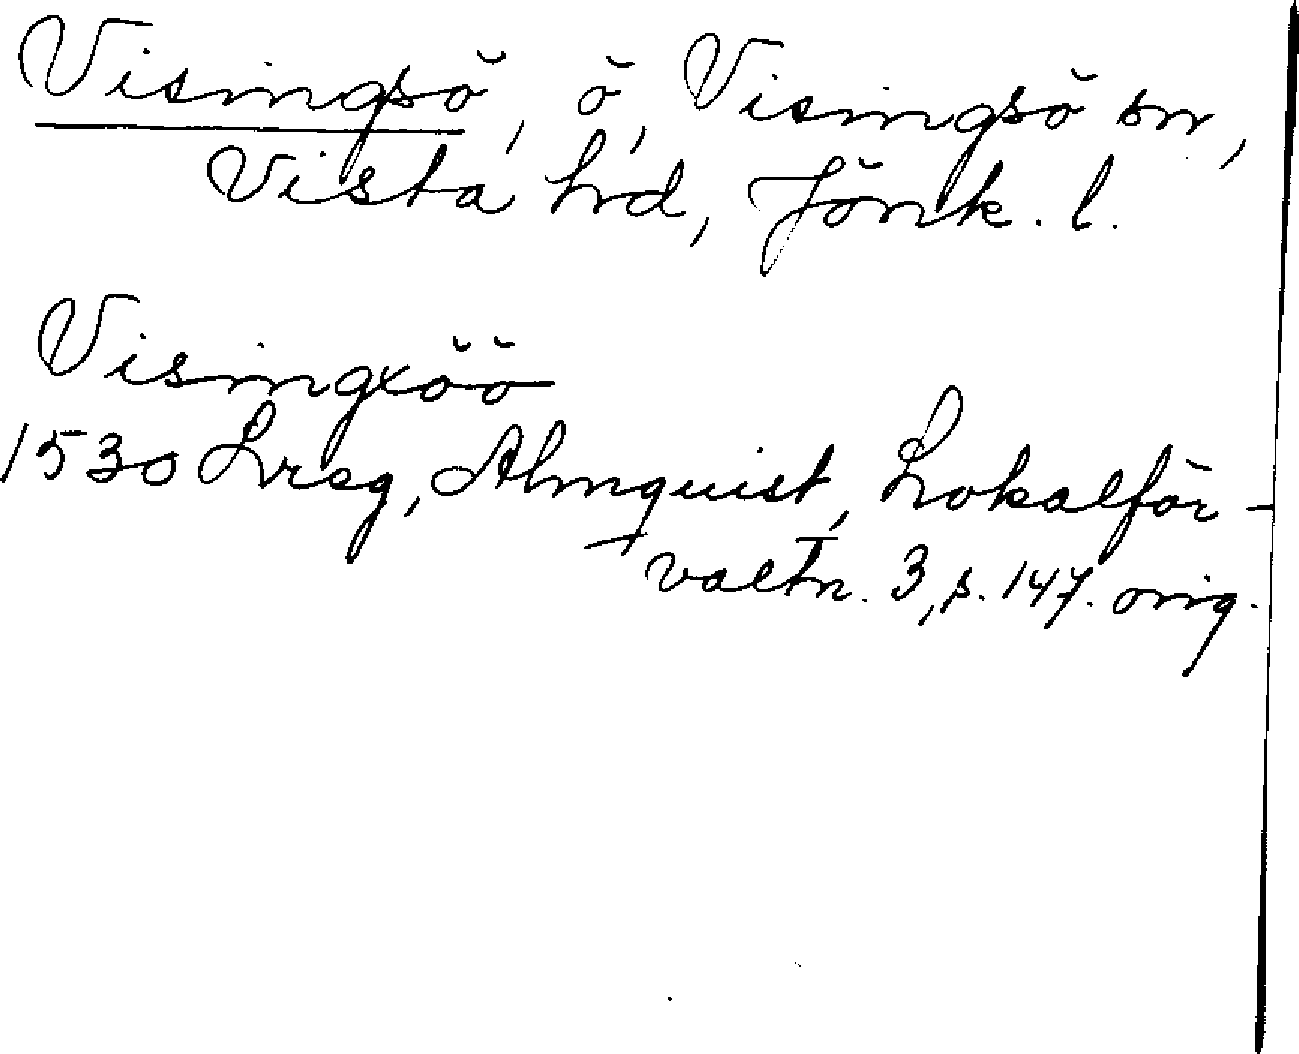 Visingsö, ö, Visingsö sn,
Vista hd, Jönk. l.
Visingxöö
1530 Lrsg, Almquist, Lokalför-
valtn. 3, s. 147. orig.